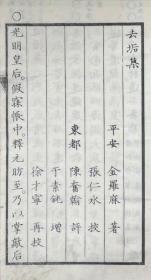 去垢集
平安 金羅麻 著
張仁水 校
東都 陳奮翰 評
于素銑 増
徐才寧 再校
○光明皇后。假寐帳中。釋元昉至。乃以掌敲后